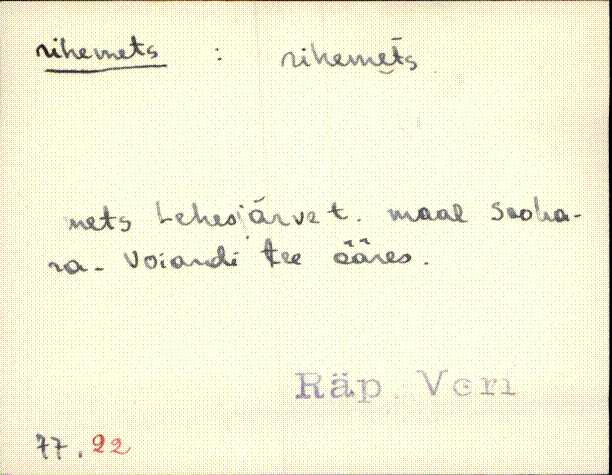 rihemets : rihemets
mets Lehesjärve t. maal Sooha-
ra - Voiardi tee ääres.
Räp. Veri
77. 22